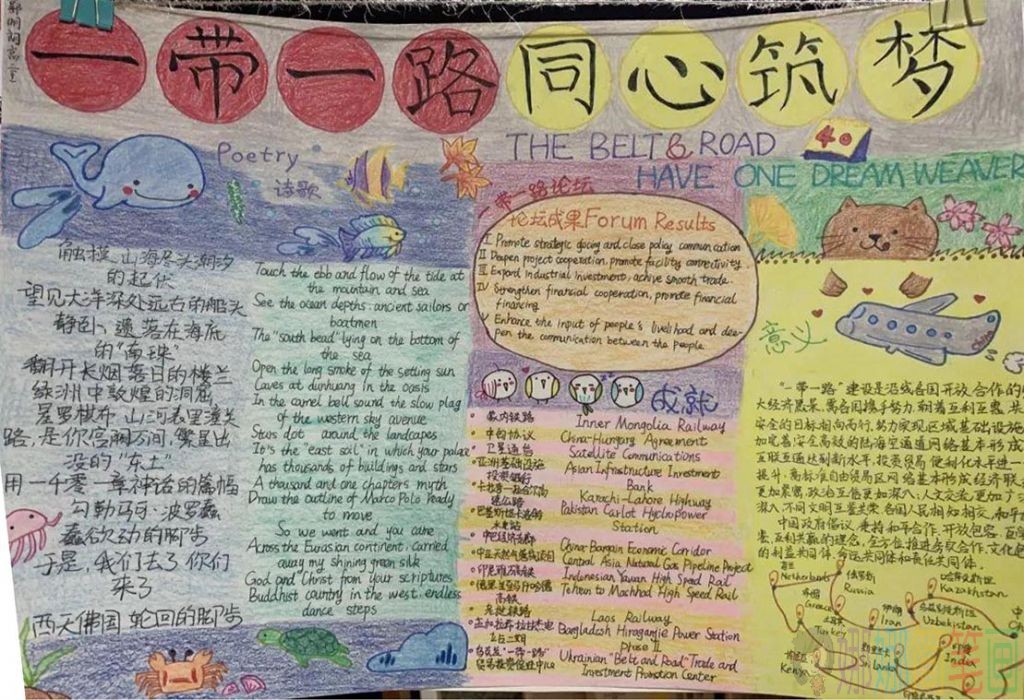 一带一路同心筑梦
THE BELT & ROAD
HAVE ONE DREAM WEAVER
40
Poetry
诗歌
触摸,山海尽头潮汐
的起伏
望见大洋深处远古的船头
静卧,遗落在海底
的"南珠"
翻开长烟落日的楼兰
绿洲中敦煌的洞窟
星罗棋布,山河表里潼关
路,是你宫阙万间,繁星出
没的"东土"
用一千零一章神话的篇幅
勾勒马可·波罗蠢
蠢欲动的脚步
于是,我们去了你们
来了
西天佛国轮回的脚步
Touch the ebb and flow of the tide at
the mountain and sea
See the ocean depths ancient sailors or
boatmen
The "south bead" lying on the bottom of
the sea
Open the long smoke of the setting sun
Caves at dunhuang in the oasis
In the camel bell sound the slow plag
of the western sky avenue
Stars dot around the landcapes
It's the "east soil" in which your palace
has thousands of buildings and stars
A thousand and one chapters myth
Draw the outline of Marco Polo ready
to move
So we went and you came
Across the Eurasian continent carried
away my shining green silk
God and Christ from your scriptures
Buddhist country in the west endless
dance steps
一带一路论坛
论坛成果Forum Results
I Promote strategic docing and close policy communication
II Deepen project cooperation, promote facility connectivity
III Expord industrial investment, achive smooth trade
IV Strengthen financial cooperation, promote financial
financing
V Enhance the input of people's livelihood and dee-
pen the communication between the people
成就
蒙内铁路 Inner Mongolia Railway
中匈协议 China-Hungary Agreement
卫星通信 Satellite Communications
亚洲基础设施 Asian Infrastructure Investment
投资银行 Bank
Karachi-Lahore Highway
Pakistan Carlot Hyclropower
水电站 Station
中巴经济走廊 China-Bangain Economic Corridor
中亚天然气管线项目 Central Asia Natural Gas Pipeline Project
印尼雅万高铁 Indonesian Yawan High Speed Rail
高铁 Tehren to Machhad High Speed Rail
老挝铁路 Laos Railway
Bangladesh Hiragamjie Power Station
二期 phase II
乌克兰"一带一路" Ukrainian "Belt and Road" Trade and
贸易投资促进中心 Investment Promotion Center
意义
china
"一带一路"建设是沿线各国开放合作的
大经济愿景,需各国携手努力,朝着互利互惠、共
安全的目标相向而行,努力实现区域基础设施
加完善安全高效的陆海空通道网络基本形成
互联互通达到新水平,投资贸易便利化水平进一
提升,高标准自由贸易区网络基本形成经济联
更加紧密,政治互信更加深入;人文交流更加广
深入,不同文明互鉴共荣,各国人民相知相交,和平
中国政府倡议,秉持和平合作、开放包容、互学
鉴、互利共赢的理念,全方位推进务实合作,文化包
的利益共同体、命运共同体和责任共同体。
荷兰
Netherlands
俄罗斯
Russia
哈萨克斯坦
Kazakhstan
希腊
Greece
土耳其
Turkey
伊朗
Iran
乌兹别克斯坦
Uzbekistan
Kenya
斯里兰卡
Sri Lanka
印度
India